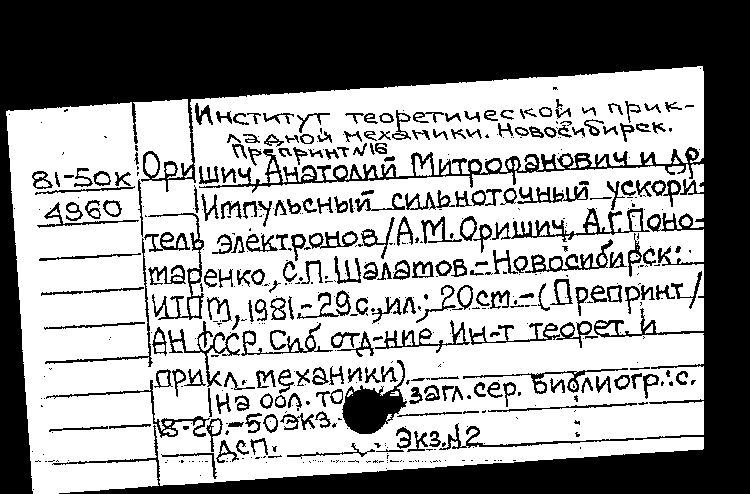 Институт теоретической и прик-
ладной механики. Новосибирск.
Препринт №16
81-50к Оришич, Анатолий Митрофанович и др.
4960 Импульсный сильноточный ускори-
тель электронов/А.М.Оришич, А.Г.Поно-
маренко, С.П.Шалатов.-Новосибирск:
ИТПМ, 1981.-29с.,ил.; 20см.-(Препринт/
АН СССР. Сиб. отд-ние, Ин-т теорет. и
прикл. механики)
На обл. загл.сер. Библиогр.: с.
18-20.-50экз.
ДСП. Экз.№2